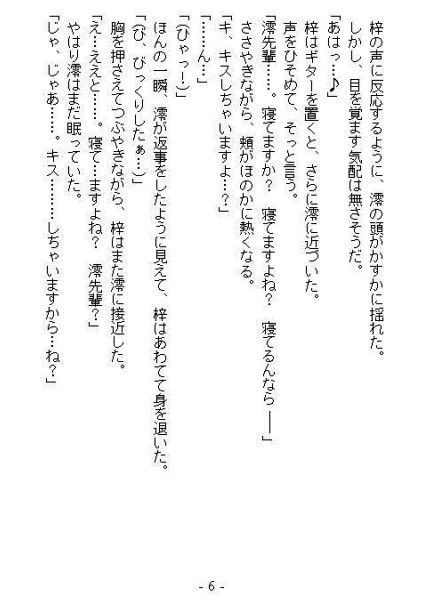 梓の声に反応するように、澪の頭がかすかに揺れた。
しかし、目を覚ます気配は無さそうだ。
「あはっ…♪」
梓はギターを置くと、さらに澪に近づいた。
声をひそめて、そっと言う。
「澪先輩……。寝てますか？　寝てますよね？　寝てるんなら――」
ささやきながら、頬がほのかに熱くなる。
「キ、キスしちゃいますよ…？」
「……ん…」
「(ひゃっー！)」
ほんの一瞬、澪が返事をしたように見えて、梓はあわてて身を退いた。
「(び、びっくりしたぁ…)」
胸を押さえてつぶやきながら、梓はまた澪に接近した。
「え…ええと……。寝て…ますよね？　澪先輩？」
やはり澪はまだ眠っていた。
「じゃ、じゃあ……。キス………しちゃいますから…ね？」
- 6 -